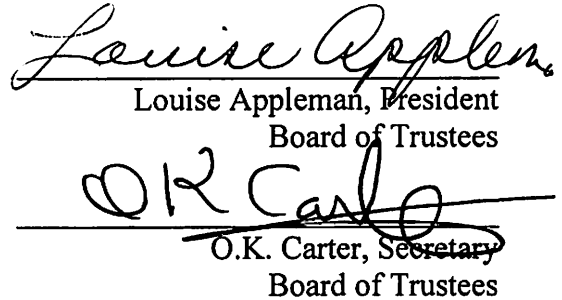 Louise Applem
Louise Appleman, President
Board of Trustees
OK Carter
O.K. Carter, Secretary
Board of Trustees